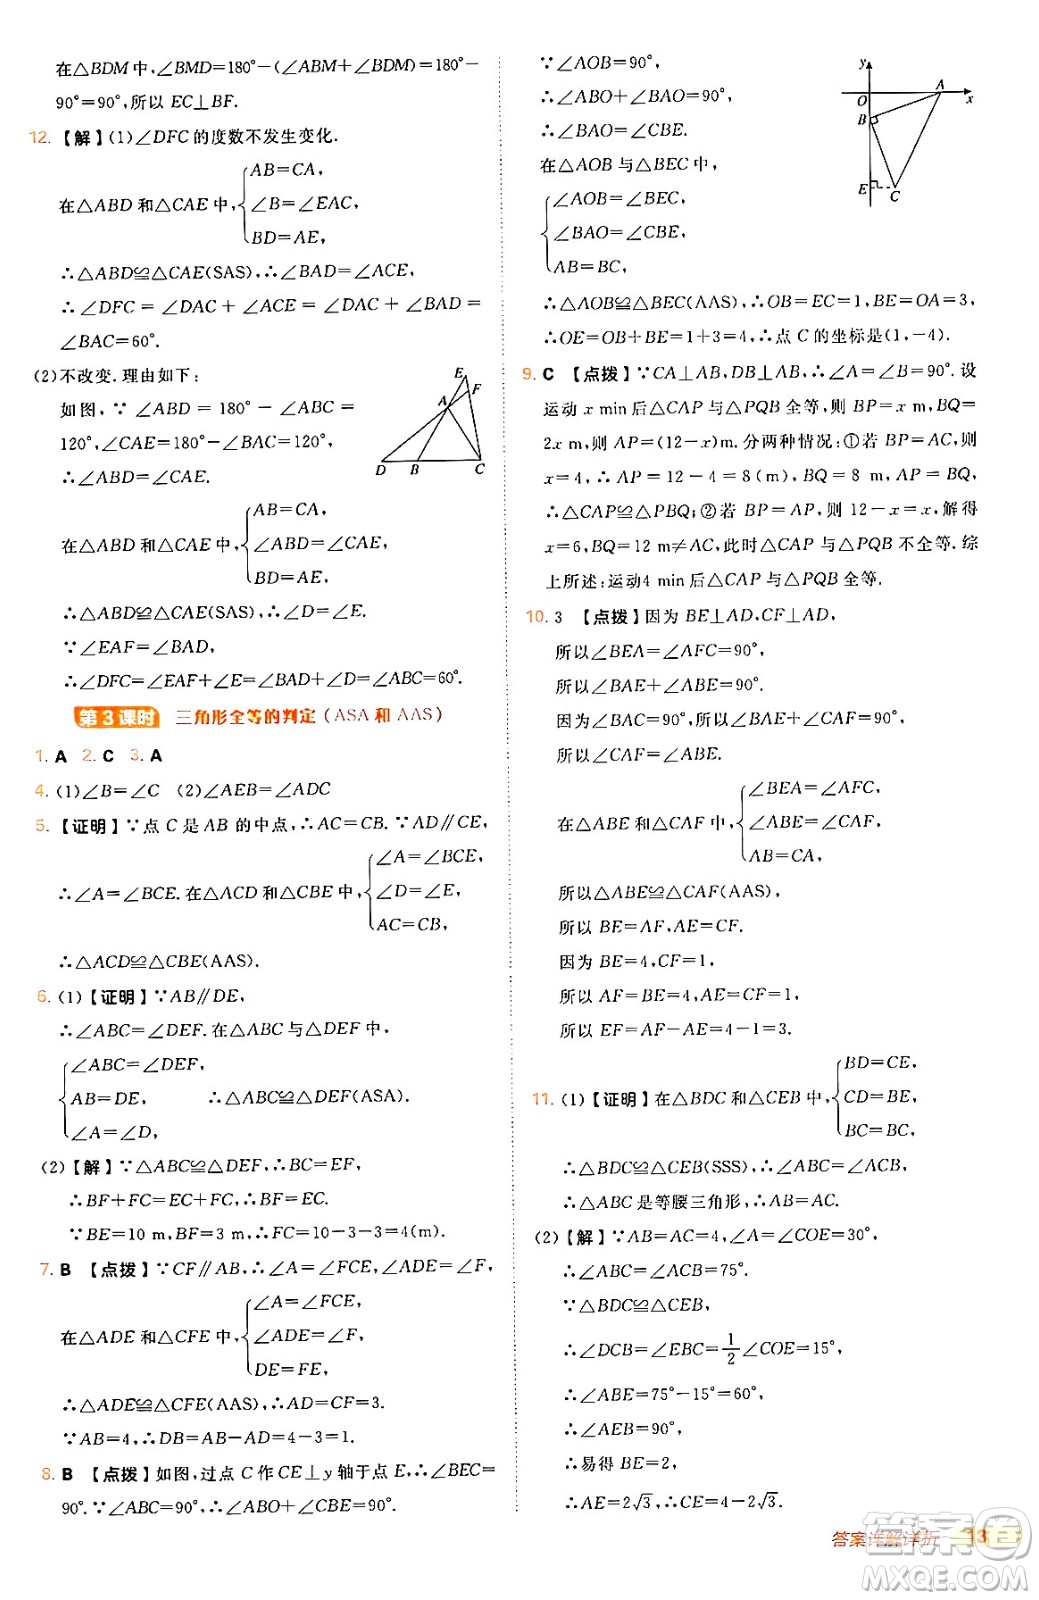 在△BDM中,∠BMD=180°-(∠ABM+∠BDM)=180°-
90°=90°,所以 EC⊥BF.
12.【解】(1)∠DFC 的度数不发生变化.
在△ABD 和△CAE 中,
AB=CA,
∠B=∠EAC,
BD=AE,
∴△ABD≌△CAE(SAS),∴∠BAD=∠ACE,
∴∠DFC=∠DAC+∠ACE=∠DAC+∠BAD=
∠BAC=60°.
(2)不改变.理由如下:
如图,∵∠ABD=180°-∠ABC=
120°,∠CAE=180°-∠BAC=120°,
∴∠ABD=∠CAE.
在△ABD 和△CAE 中,
AB=CA,
∠ABD=∠CAE,
BD=AE,
∴△ABD≌△CAE(SAS),∴∠D=∠E.
∵∠EAF=∠BAD,
∴∠DFC=∠EAF+∠E=∠BAD+∠D=∠ABC=60°.
E
F
A
D
B
C
第3课时 三角形全等的判定(ASA 和 AAS)
1. A 2. C 3. A
4. (1)∠B=∠C (2)∠AEB=∠ADC
5.【证明】∵点 C 是 AB 的中点,∴AC=CB.∵AD∥CE,
∴∠A=∠BCE.在△ACD 和△CBE 中,
∠A=∠BCE,
∠D=∠E,
AC=CB,
∴△ACD≌△CBE(AAS).
6. (1)【证明】∵AB∥DE,
∴∠ABC=∠DEF.在△ABC 与△DEF 中,
∠ABC=∠DEF,
AB=DE,
∠A=∠D,
∴△ABC≌△DEF(ASA).
(2)【解】∵△ABC≌△DEF,∴BC=EF,
∴BF+FC=EC+FC,∴BF=EC.
∵BE=10 m,BF=3 m,∴FC=10-3-3=4(m).
7. B 【点拨】∵CF∥AB,∴∠A=∠FCE,∠ADE=∠F.
在△ADE 和△CFE 中,
∠A=∠FCE,
∠ADE=∠F,
DE=FE,
∴△ADE≌△CFE(AAS),∴AD=CF=3.
∵AB=4,∴DB=AB-AD=4-3=1.
8. B 【点拨】如图,过点 C 作 CE⊥y 轴于点 E,∴∠BEC=
90°.∵∠ABC=90°,∴∠ABO+∠CBE=90°.
∵∠AOB=90°,
∴∠ABO+∠BAO=90°,
∴∠BAO=∠CBE.
在△AOB 与△BEC 中,
∠AOB=∠BEC,
∠BAO=∠CBE,
AB=BC,
y
A
O
x
B
E
C
∴△AOB≌△BEC(AAS),∴OB=EC=1,BE=OA=3,
∴OE=OB+BE=1+3=4,∴点 C 的坐标是(1,-4).
9. C 【点拨】∵CA⊥AB,DB⊥AB,∴∠A=∠B=90°.设
运动 x min后△CAP 与△PQB 全等,则 BP=x m,BQ=
2x m,则 AP=(12-x)m.分两种情况:①若 BP=AC,则
x=4,∴AP=12-4=8(m),BQ=8 m,∴AP=BQ,
∴△CAP≌△PBQ;②若 BP=AP,则 12-x=x,解得
x=6,BQ=12 m≠AC,此时△CAP 与△PQB 不全等.综
上所述:运动4 min后△CAP 与△PQB 全等.
10. 3 【点拨】因为 BE⊥AD,CF⊥AD,
所以∠BEA=∠AFC=90°,
所以∠BAE+∠ABE=90°.
因为∠BAC=∠BAE+∠CAF=90°,
所以∠CAF=∠ABE.
在△ABE 和△CAF 中,
∠BEA=∠AFC,
∠ABE=∠CAF,
AB=CA,
所以△ABE≌△CAF(AAS),
所以 BE=AF,AE=CF.
因为 BE=4,CF=1,
所以 AF=BE=4,AE=CF=1,
所以 EF=AF-AE=4-1=3.
11. (1)【证明】在△BDC 和△CEB 中,
BD=CE,
CD=BE,
BC=BC,
∴△BDC≌△CEB(SSS),∴∠ABC=∠ACB,
∴△ABC 是等腰三角形,∴AB=AC.
(2)【解】∵AB=AC=4,∠A=∠COE=30°,
∴∠ABC=∠ACB=75°.
∵△BDC≌△CEB,
∴∠DCB=∠EBC=1/2∠COE=15°,
∴∠ABE=75°-15°=60°,
∴∠AEB=90°,
∴易得 BE=2,
∴AE=2√3,∴CE=4-2√3.
答案详解详析 13
答案圈
MXQE.COM